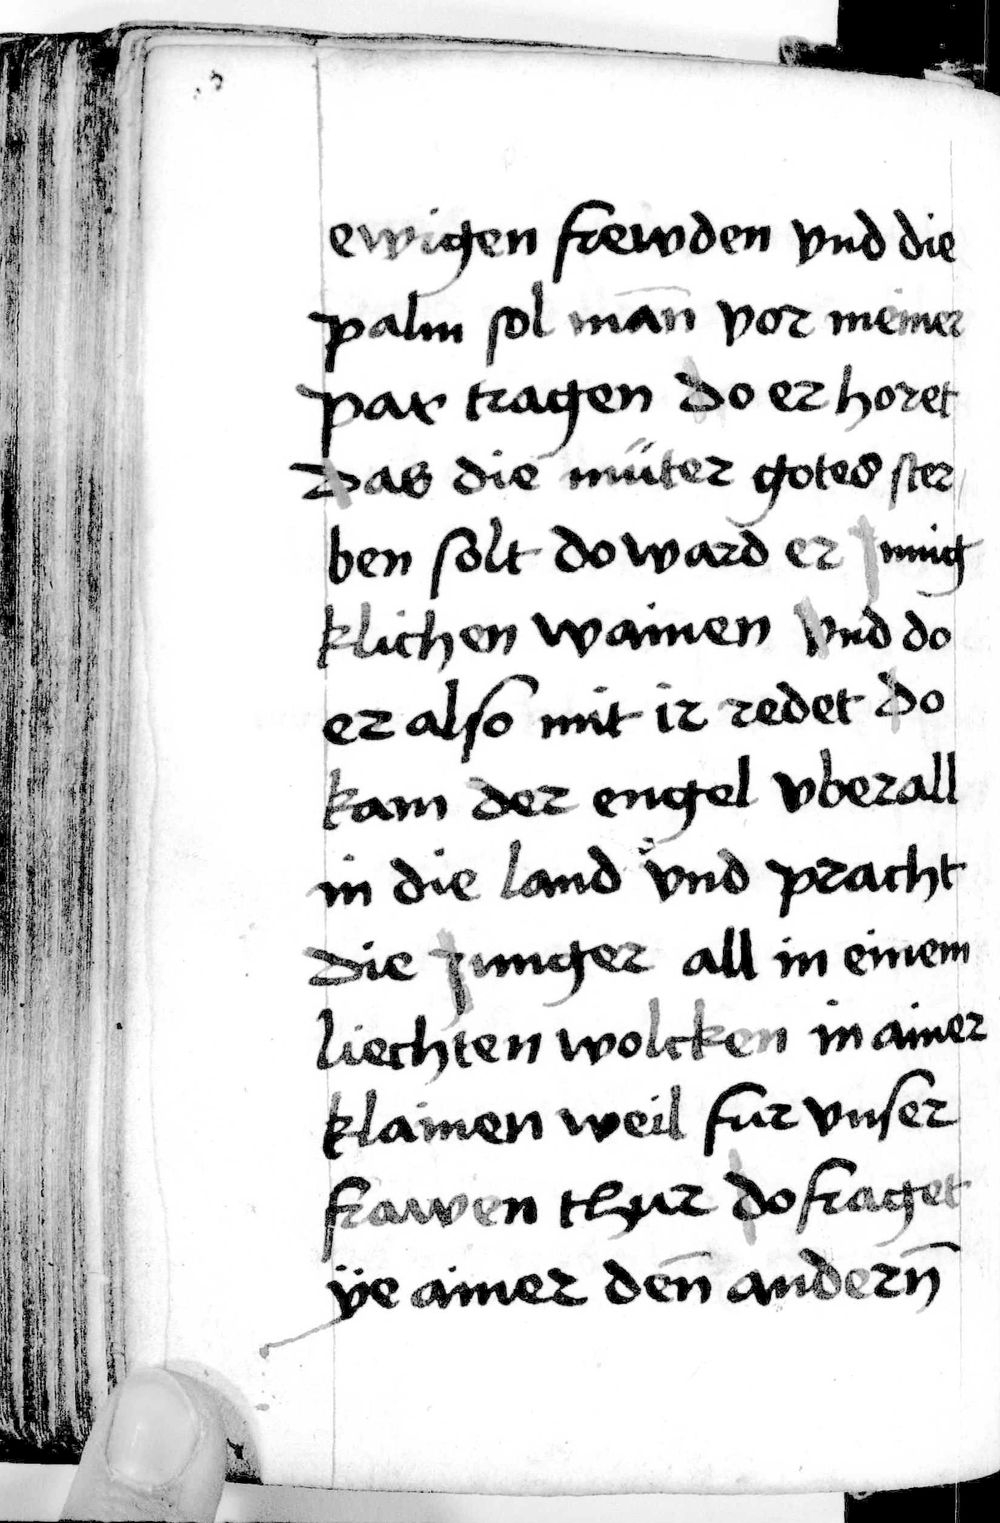 ewigen frewden vnd die
palm sol man̄ vor meiner
pax tragen do er horet
das die müter gotes ster
ben solt do ward er Jnnig
klichen wainen Vnd do
er also mit ir redet do
kam der engel vberall
in die land vnd pracht
die Junger all in einem
liechten wolcken in ainer
klainen weil fur vnser
frawen thur do fraget
ÿe ainer den̄ andern̄